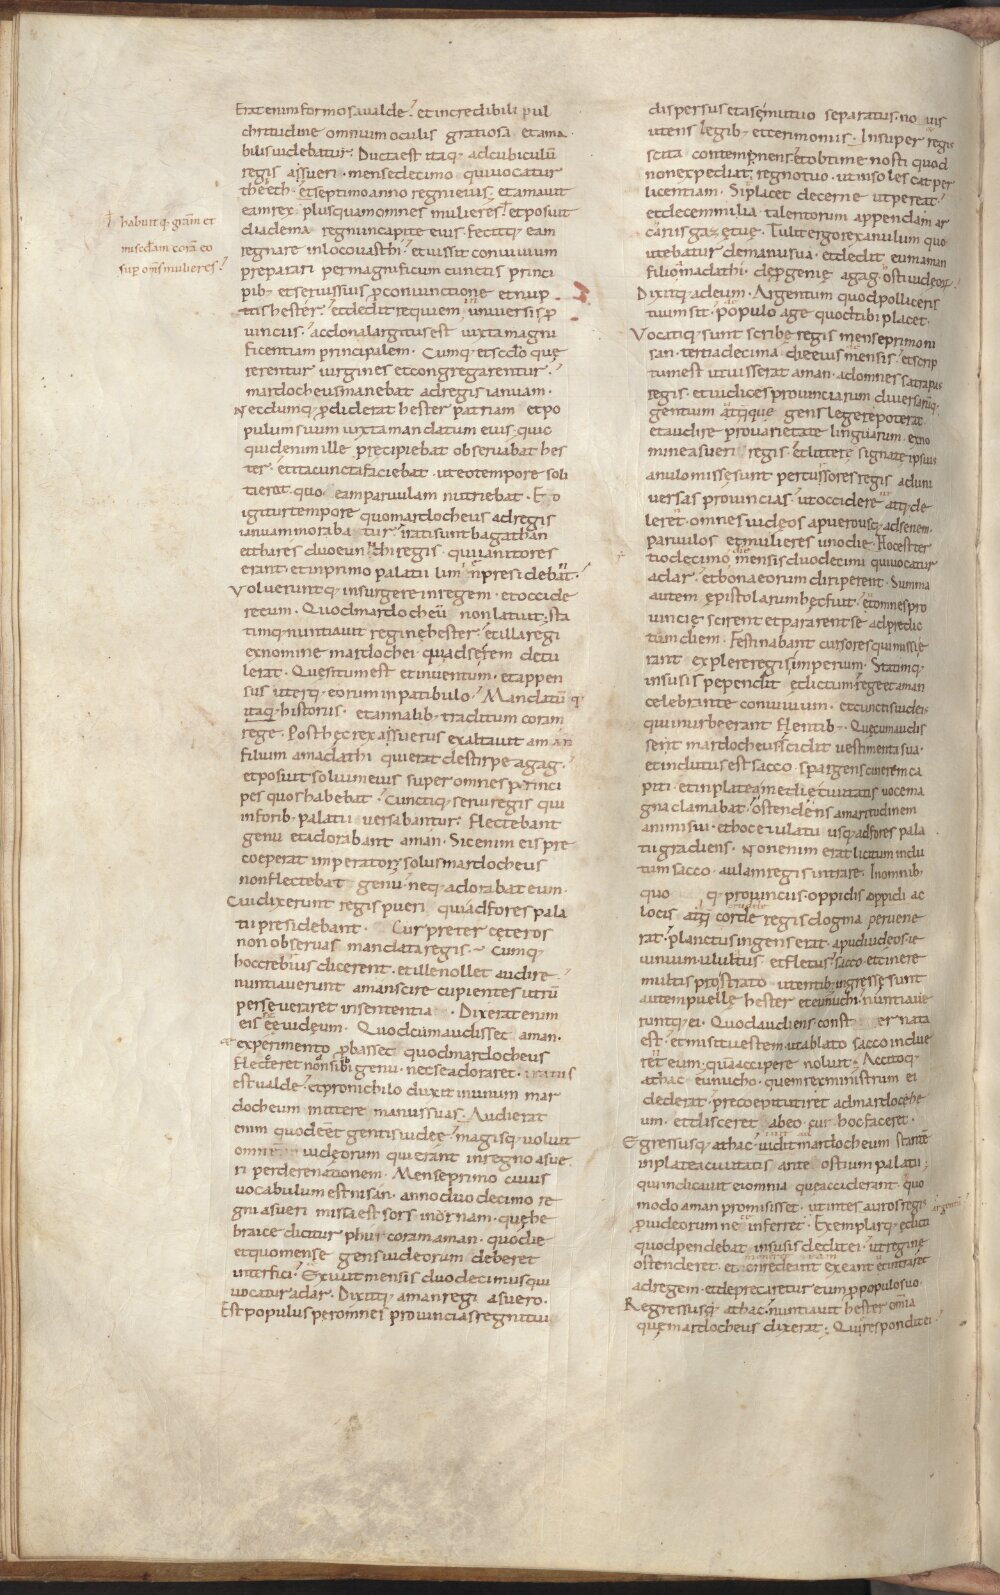 Erat enim formosa ualde. et incredibili pul
chritudine omnium oculis gratiosa et ama
bilis uidebatur. Ducta est itaq; ad cubiculū
regis assueri. mense decimo qui uocatur
thebeth. et septimo anno regni eius. et amauit
eam rex plus quam omnes mulieres. et posuit
habuit q; gratiā et
misedīam corā eo
sup̄ om̄s mulieres.
diadema regni in capite eius. fecitq; eam
regnare in loco uasthi. et iussit conuiuium
preparari permagnificum cunctis princi
pib; et seruis suis p̄ coniunctione et nup
tiis hester. et dedit requiem uniuersis p̄
uinciis. ac dona largitus est iuxta magni
ficentiam principalem. Cumq; et scdō quę
rerentur uirgines et congregarentur.
mardocheus manebat ad regis ianuam.
Necdumq; p̄diderat hester patriam et po
pulum suum iuxta mandatum eius. quic
quid enim ille precipiebat obseruabat hes
ter. et ita cuncta faciebat ut eo tempore soli
ta erat. quo eam paruulam nutriebat. Eo
igitur tempore quo mardocheus ad regis
ianuam moraba tur. irati sunt bagathan
et thares duo eunuchi regis. qui ianitores
erant. et in primo palatii limine presidebant.
Volueruntq; insurgere in regem et occide
re eum. Quod mardocheū non latuit. sta
timq; nuntiauit regine hester. et illa regi
ex nomine mardochei. qui ad se rem detu
lerat. Quesitum est et inuentum. et appen
sus uterq; eorum in patibulo. Mandatūq;
itaq; historiis. et annalib; traditum coram
rege. Post hec rex assuerus exaltauit aman
filium amadathi qui erat de stirpe agag.
et posuit solium eius super omnes princi
pes quos habebat. Cunctiq; serui regis qui
in forib; palatii uersabantur. flectebant
genu et adorabant aman. Sic enim eis pre
ceperat imperator. solus mardocheus
non flectebat genu. neq; adorabat eum.
Cui dixerunt regis pueri qui ad fores pala
tii presidebant. Cur preter cęteros
non obseruas mandata regis. Cumq;
hoc crebrius dicerent. et ille nollet audire.
nuntiauerunt aman scire cupientes utrū
perseueraret in sententia. Dixerat enim
eis eē iudęum. Quod cum audisset aman.
et experimento p̄basset quod mardocheus
flecteret non sibi genu. nec se adoraret. iratus
est ualde. et pro nichilo duxit in unum mar
docheum mittere manus suas. Audierat
enim quod eēt gentis iudeę. magisq; uoluit
omnem iudęorum qui erant in regno asue
ri perdere nationem. Mense primo cuius
uocabulum est nisan. anno duodecimo re
gni asueri missa est sors in urnam. que he
braice dicitur phur coram aman. quo die
et quo mense gens iudeorum deberet
interfici. Exiuit mensis duodecimus qui
uocatur adar. Dixitq; aman regi asuero.
Est populus per omnes prouincias regni tui
dispersus et a se mutuo separatus. nouis
utens legib; et cerimoniis. Insuper regis
scita contempnens. et obtime nosti quod
non expediat regno tuo ut insolescat per
licentiam. Si placet decerne ut pereat.
et decem milia talentorum appendam ar
cariis gazę tuę. Tulit ergo rex anulum quo
utebatur de manu sua. et dedit eum aman
filio amadathi. de p̄genie agag. osti iudeorum.
Dixitq; ad eum. Argentum quod polliceris
tuum sit. de populo age quod tibi placet.
Vocatiq; sunt scribę regis mense primo ni
san. tertia decima die eius mensis. et scrip
tum est ut iusserat aman. ad omnes satrapas
regis. et iudices prouinciarum diuersarūq;
gentium ut queque gens legere poterat
et audire pro uarietate linguarum. ex no
mine asueri regis. et litterę signatę ipsius
anulo missę sunt per cursores regis ad uni
uersas prouincias. ut occiderent atq; de
lerent omnes iudęos a puero usq; ad senem.
paruulos et mulieres uno die. Hoc est ter
tio decimo mensis duodecimi qui uocatur
adar. et bona eorum diriperent. Summa
autem epistolarum hęc fuit. ut omnes pro
uincię scirent et pararent se ad predic
tam diem. Festinabant cursores qui missi e
rant explere regis imperium. Statimq;
in susis pependit edictum rege et aman
celebrante conuiuium. et cunctis iudeis
qui in urbe erant flentib;. Quę cum audis
sent mardocheus scidit uestimenta sua.
et indutus est sacco. spargens cinerem ca
piti. et in platea medię ciuitatis uoce ma
gna clamabat. ostendens amaritudinem
animi sui. et hoc eiulatu usq; ad fores pala
tii gradiens. Non enim erat licitum indu
tum sacco. aulam regis intrare. In omnib;
quoq; prouinciis. oppidis ac
locis ad q̄ crudele regis dogma peruene
rat. planctus ingens erat. apud iudeos. ie
iunium. ululatus et fletus. sacco et cinere
multis pro strato utentib;. ingressę sunt
autem puellę hester et eunuchi. nuntiaue
runtq; ei. Quod audiens consternata
est. et misit uestem ut ablato sacco indue
rent eum. quam accipere noluit. Accitoq;
athac eunucho. quem rex ministrum ei
dederat. precoepit ut iret ad mardoche
um. et disceret ab eo. cur hoc faceret.
Egressusq; athac. iuit ad mardocheum stantē
in platea ciuitatis ante ostium palatii;
qui indicauit ei omnia que acciderant. quo
modo aman promisisset. ut in tesauros regis argentū
p̄ iudeorum nece inferret. Exemplarq; edicti
quod pendebat in susis dedit ei. ut reginę
ostenderet. et moneret eam ut intraret
ad regem. et deprecaretur eum p̄ populo suo.
Regressusq; athac. nuntiauit hester omnia
quę mardocheus dixerat. Quę respondit ei.